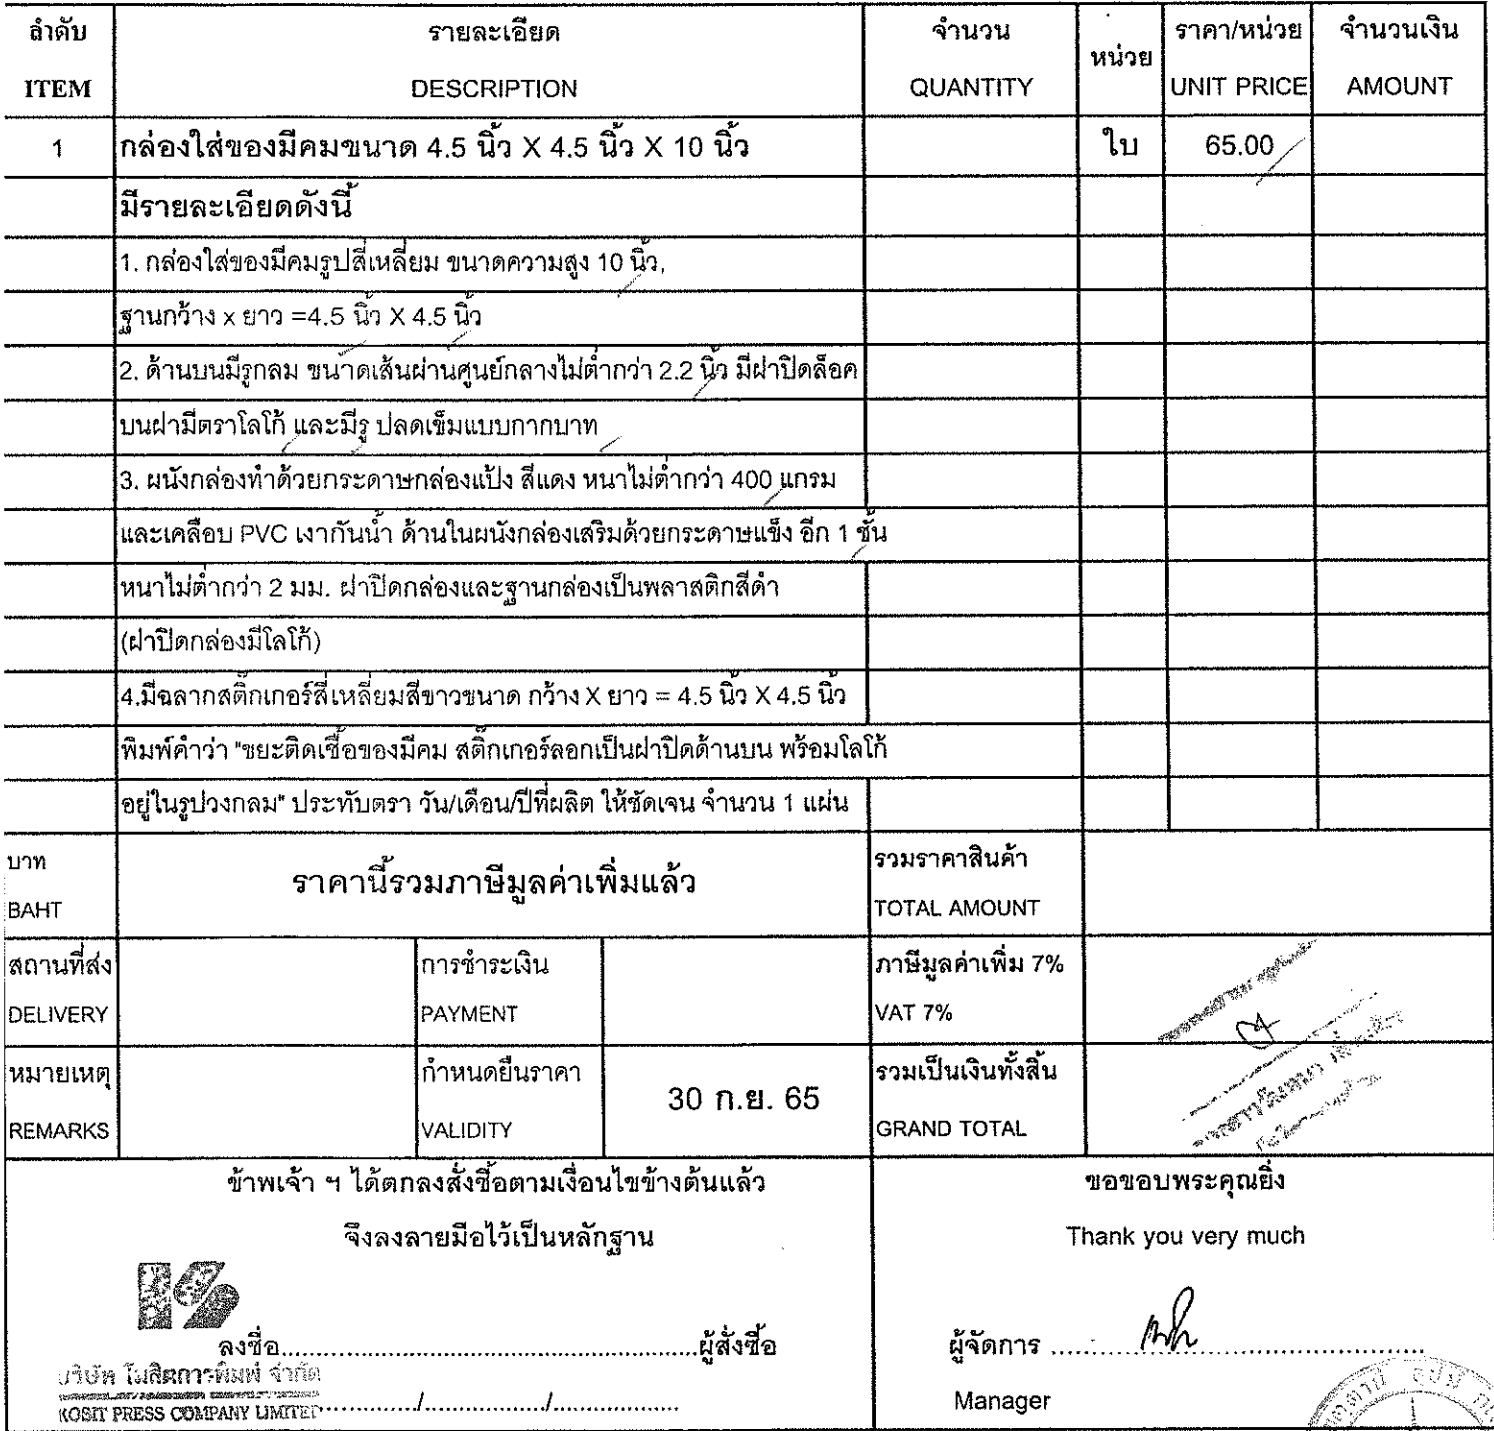 ลำดับ รายละเอียด จำนวน หน่วย ราคา/หน่วย จำนวนเงิน
ITEM DESCRIPTION QUANTITY UNIT PRICE AMOUNT
1 กล่องใส่ของมีคมขนาด 4.5 นิ้ว X 4.5 นิ้ว X 10 นิ้ว ใบ 65.00
มีรายละเอียดดังนี้
1. กล่องใส่ของมีคมรูปสี่เหลี่ยม ขนาดความสูง 10 นิ้ว,
ฐานกว้าง x ยาว =4.5 นิ้ว X 4.5 นิ้ว
2. ด้านบนมีรูกลม ขนาดเส้นผ่านศูนย์กลางไม่ต่ำกว่า 2.2 นิ้ว มีฝาปิดล็อค
บนฝามีตราโลโก้ และมีรู ปลดเข็มแบบกากบาท
3. ผนังกล่องทำด้วยกระดาษกล่องแป้ง สีแดง หนาไม่ต่ำกว่า 400 แกรม
และเคลือบ PVC เงากันน้ำ ด้านในผนังกล่องเสริมด้วยกระดาษแข็ง อีก 1 ชั้น
หนาไม่ต่ำกว่า 2 มม. ฝาปิดกล่องและฐานกล่องเป็นพลาสติกสีดำ
(ฝาปิดกล่องมีโลโก้)
4.มีฉลากสติ๊กเกอร์สี่เหลี่ยมสีขาวขนาด กว้าง X ยาว = 4.5 นิ้ว X 4.5 นิ้ว
พิมพ์คำว่า "ขยะติดเชื้อของมีคม สติ๊กเกอร์ลอกเป็นฝาปิดด้านบน พร้อมโลโก้
อยู่ในรูปวงกลม" ประทับตรา วัน/เดือน/ปีที่ผลิต ให้ชัดเจน จำนวน 1 แผ่น
บาท ราคานี้รวมภาษีมูลค่าเพิ่มแล้ว รวมราคาสินค้า
BAHT TOTAL AMOUNT
สถานที่ส่ง การชำระเงิน ภาษีมูลค่าเพิ่ม 7%
DELIVERY PAYMENT VAT 7%
หมายเหตุ กำหนดยืนราคา 30 ก.ย. 65 รวมเป็นเงินทั้งสิ้น
REMARKS VALIDITY GRAND TOTAL
ข้าพเจ้า ฯ ได้ตกลงสั่งซื้อตามเงื่อนไขข้างต้นแล้ว
จึงลงลายมือไว้เป็นหลักฐาน
ลงชื่อ....................................................ผู้สั่งซื้อ
บริษัท โฆสิตการพิมพ์ จำกัด
KOSIT PRESS COMPANY LIMITED ............../................/................
ขอขอบพระคุณยิ่ง
Thank you very much
ผู้จัดการ ................................................
Manager